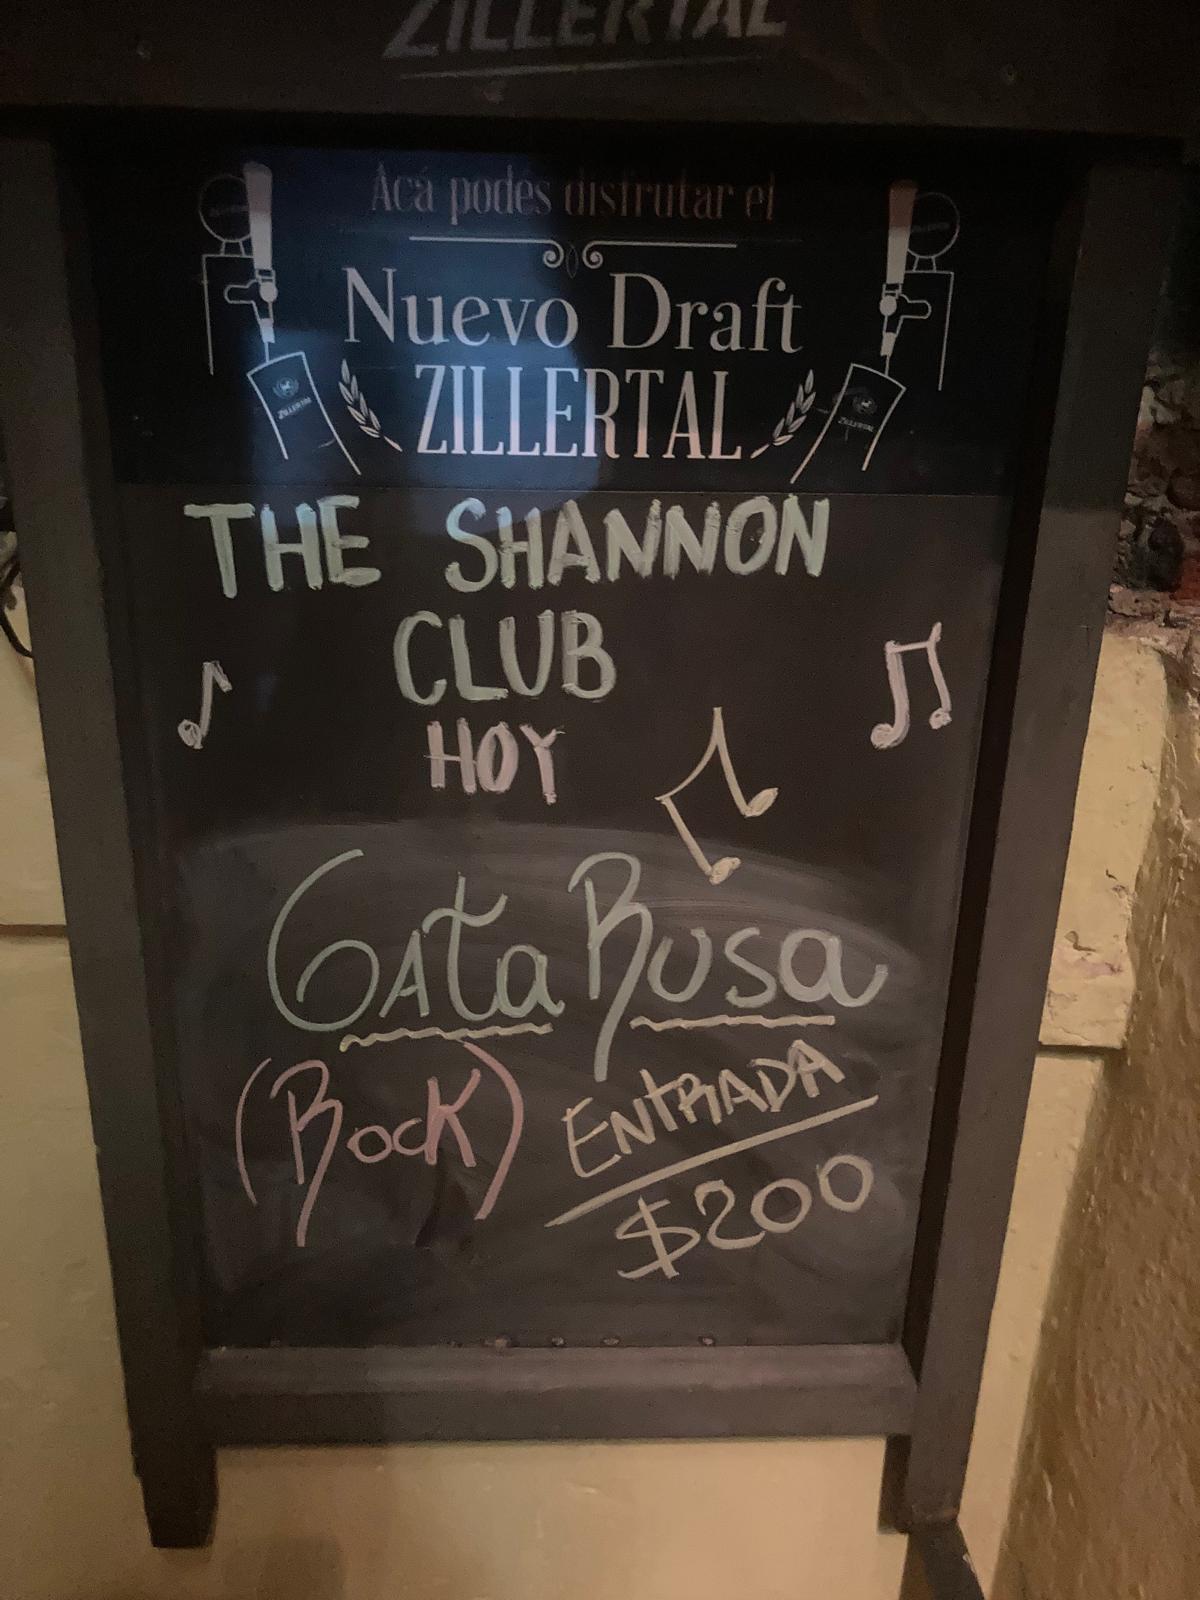 ZILLERTAL
Acá podés disfrutar el
Nuevo Draft
ZILLERTAL
ZILLERTAL
ZILLERTAL
THE SHANNON
CLUB
HOY
Gata Rusa
(Rock)
ENtRADA
$200